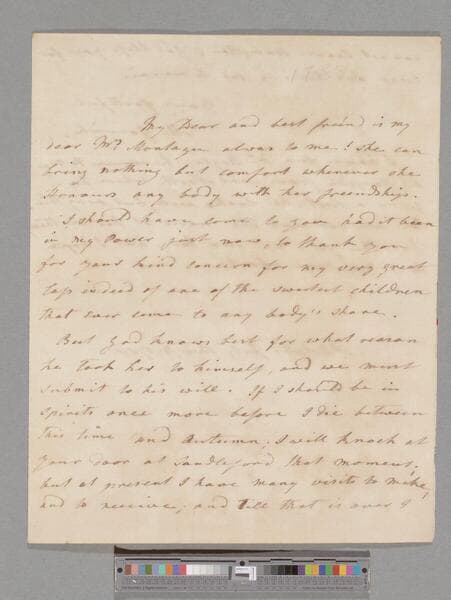 My Dear and best friend is my
dear Mrs. Montagu alwas to me! She can
bring nothing but comfort wherever she
Honours any body with her freendships.
I should have come to you had it been
in my Power just now, to thank you
for your kind concern for my very great
loss indeed of one of the sweetest children
that ever come to any body's share.
But God knows best for what reason
he took her to himself, and we must
submit to his will. If I should be in
spirits once more before I die between
this time and Autumn, I will knock at
your door at Sandleford that moment,
but at present I have many visits to make
and to receive, and till that is over I